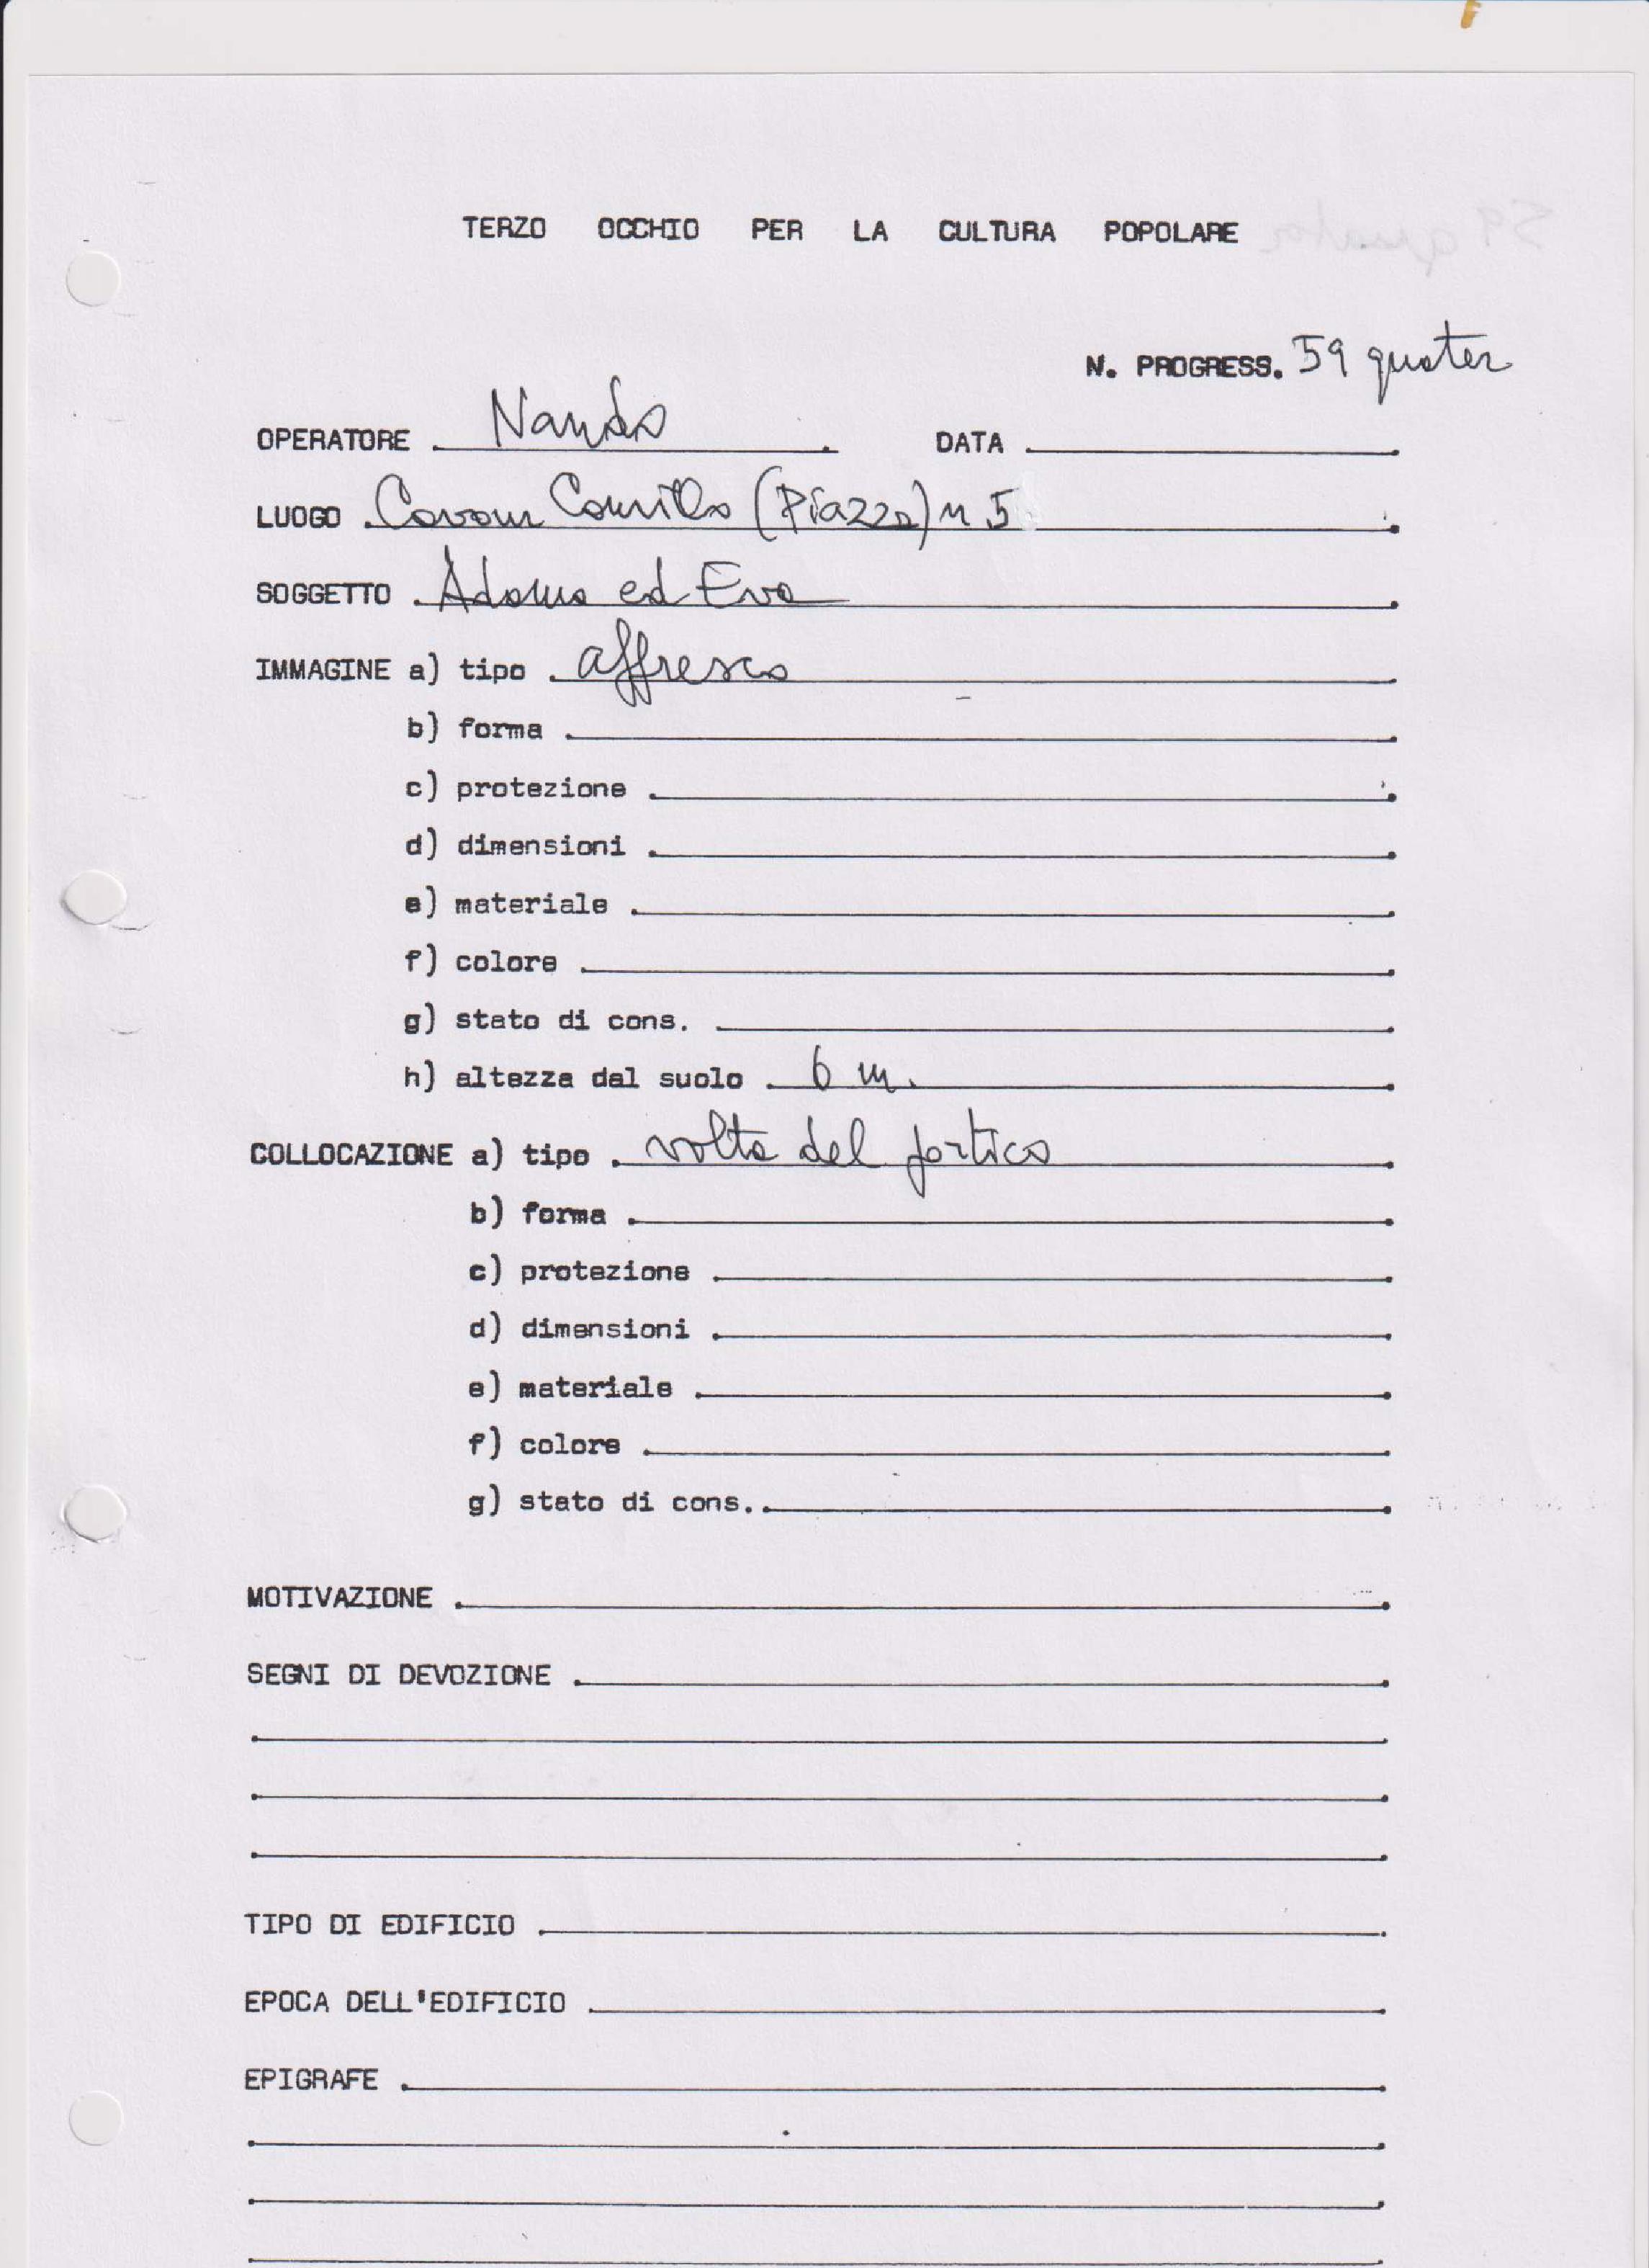 TERZO OCCHIO PER LA CULTURA POPOLARE
N. PROGRESS. 59 quater
OPERATORE Nando DATA
LUOGO Cavour Camillo (Piazza) n 5
SOGGETTO Adamo ed Eva
IMMAGINE a) tipo affresco
b) forma
c) protezione
d) dimensioni
e) materiale
f) colore
g) stato di cons.
h) altezza dal suolo 6 m.
COLLOCAZIONE a) tipo volta del portico
b) forma
c) protezione
d) dimensioni
e) materiale
f) colore
g) stato di cons.
MOTIVAZIONE
SEGNI DI DEVOZIONE
TIPO DI EDIFICIO
EPOCA DELL'EDIFICIO
EPIGRAFE